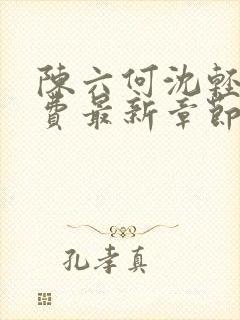 陳六何沈輕
費最新章節
孔孝真